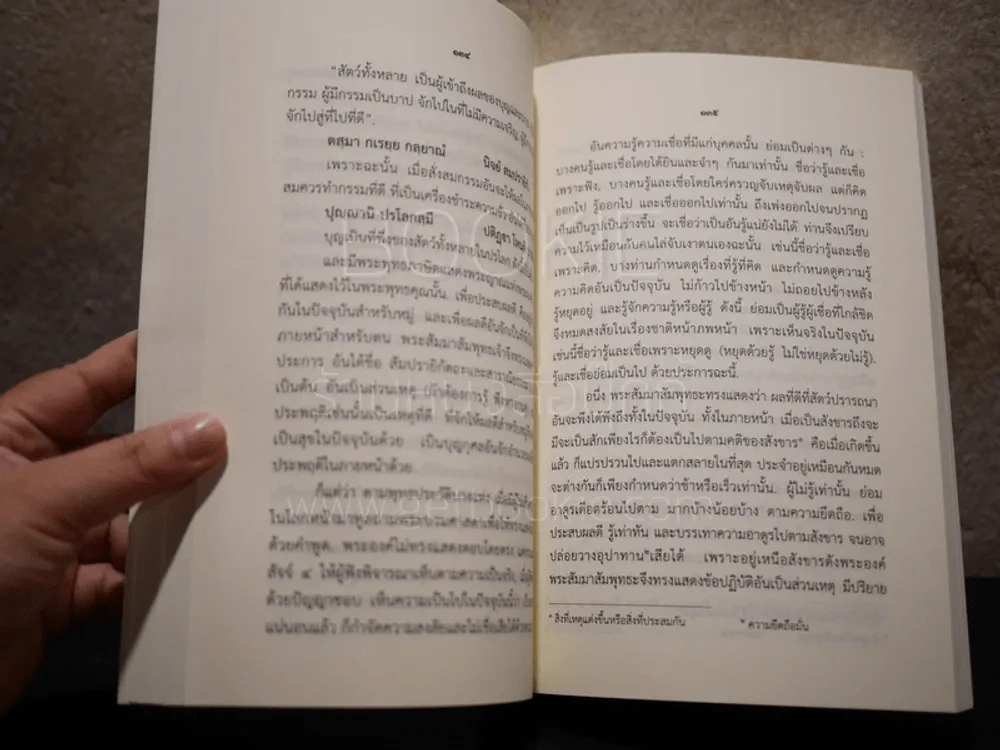 ๑๓๔
"สัตว์ทั้งหลาย เป็นผู้เข้าถึงผลของบุญและบาป
กรรม ผู้มีกรรมเป็นบาป จักไปในที่ไม่มีความเจริญ
จักไปสู่ที่ไปที่ดี".
ตสฺมา กเรยฺย กลฺยาณํ นิจยํ สมฺปรายิกํ
เพราะฉะนั้น เมื่อสั่งสมกรรมอันจะให้ผลใน
สมควรทำกรรมที่ดี ที่เป็นเครื่องชำระความชั่ว
ปุญฺญานิ ปรโลกสฺมึ ปติฏฺฐา โหนฺติ
บุญเป็นที่พึ่งของสัตว์ทั้งหลายในปรโลก
และมีพระพุทธภาษิตแสดงพระญาณแห่งพระองค์
ที่ได้แสดงไว้ในพระพุทธคุณนั้น. เพื่อประสบผลดี
กันในปัจจุบันสำหรับหมู่ และเพื่อผลดีอันจักเป็นที่
ภายหน้าสำหรับตน พระสัมมาสัมพุทธเจ้าจึงทรง
ประการ อันได้ชื่อ สัมปรายิกัตถะและสาราณิย
เป็นต้น อันเป็นส่วนเหตุ
ประพฤติเช่นนั้นเป็นเหตุที่ดี ที่จักให้ผลดีสำหรับ
เป็นสุขในปัจจุบันด้วย เป็นบุญกุศลอันจักอำนวย
ประพฤติในภายหน้าด้วย.
ก็แต่ว่า ตามพุทธประวัติบางแห่ง
ในโลกหน้ามาทูลถามพระบรมศาสดาเพื่อให้ทรง
ด้วยคำพูด. พระองค์ไม่ทรงแสดงตอบโดยตรง
สัจจ์ ๔ ให้ผู้ฟังพิจารณาเห็นตามความเป็นจริง
ด้วยปัญญาชอบ เห็นความเป็นไปในปัจจุบันนี้ว่า
แน่นอนแล้ว ก็กำจัดความสงสัยและไม่เชื่อเสียได้ด้วย
๑๓๕
อันความรู้ความเชื่อที่มีแก่บุคคลนั้น ย่อมเป็นต่างๆ กัน :
บางคนรู้และเชื่อโดยได้ยินและจำๆ กันมาเท่านั้น ชื่อว่ารู้และเชื่อ
เพราะฟัง, บางคนรู้และเชื่อโดยใคร่ครวญจับเหตุจับผล แต่ก็คิด
ออกไป รู้ออกไป และเชื่อออกไปเท่านั้น ถึงเพ่งออกไปจนปรากฏ
เห็นเป็นรูปเป็นร่างขึ้น จะเชื่อว่าเป็นอันรู้แน่ยังไม่ได้ ท่านจึงเปรียบ
ความไว้เหมือนกับคนไล่จับเงาตนเองฉะนั้น เช่นนี้ชื่อว่ารู้และเชื่อ
เพราะคิด. บางท่านกำหนดดูเรื่องที่รู้ที่คิด และกำหนดดูความรู้
ความคิดอันเป็นปัจจุบัน ไม่ก้าวไปข้างหน้า ไม่ถอยไปข้างหลัง
รู้หยุดอยู่ และรู้จักความรู้หรือผู้รู้ ดังนี้ ย่อมเป็นผู้รู้ผู้เชื่อที่ใกล้ชิด
จึงหมดสงสัยในเรื่องชาติหน้าภพหน้า เพราะเห็นจริงในปัจจุบัน
เช่นนี้ชื่อว่ารู้และเชื่อเพราะหยุดดู (หยุดด้วยรู้ ไม่ใช่หยุดด้วยไม่รู้).
รู้และเชื่อย่อมเป็นไป ด้วยประการฉะนี้.
อนึ่ง พระสัมมาสัมพุทธะทรงแสดงว่า ผลที่ดีที่สัตว์ปรารถนา
อันจะพึงได้พึงถึงทั้งในปัจจุบัน ทั้งในภายหน้า เมื่อเป็นสังขารถึงจะ
มีจะเป็นสักเพียงไรก็ต้องเป็นไปตามคติของสังขาร* คือเมื่อเกิดขึ้น
แล้ว ก็แปรปรวนไปและแตกสลายในที่สุด ประจำอยู่เหมือนกันหมด
จะต่างกันก็เพียงกำหนดว่าช้าหรือเร็วเท่านั้น. ผู้ไม่รู้เท่านั้น ย่อม
อาดูรเดือดร้อนไปตาม มากบ้างน้อยบ้าง ตามความยึดถือ. เพื่อ
ประสบผลดี รู้เท่าทัน และบรรเทาความอาดูรไปตามสังขาร จนอาจ
ปล่อยวางอุปาทาน**เสียได้ เพราะอยู่เหนือสังขารดังพระองค์
พระสัมมาสัมพุทธะจึงทรงแสดงข้อปฏิบัติอันเป็นส่วนเหตุ มีปริยาย
* สิ่งที่เหตุแต่งขึ้นหรือสิ่งที่ประสมกัน ** ความยึดถือมั่น